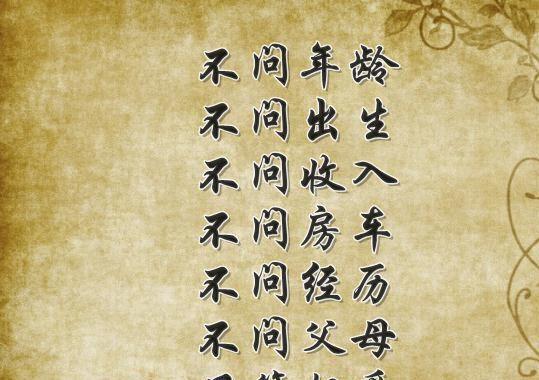 不问年龄
不问出生
不问收入
不问房车
不问经历
不问父母